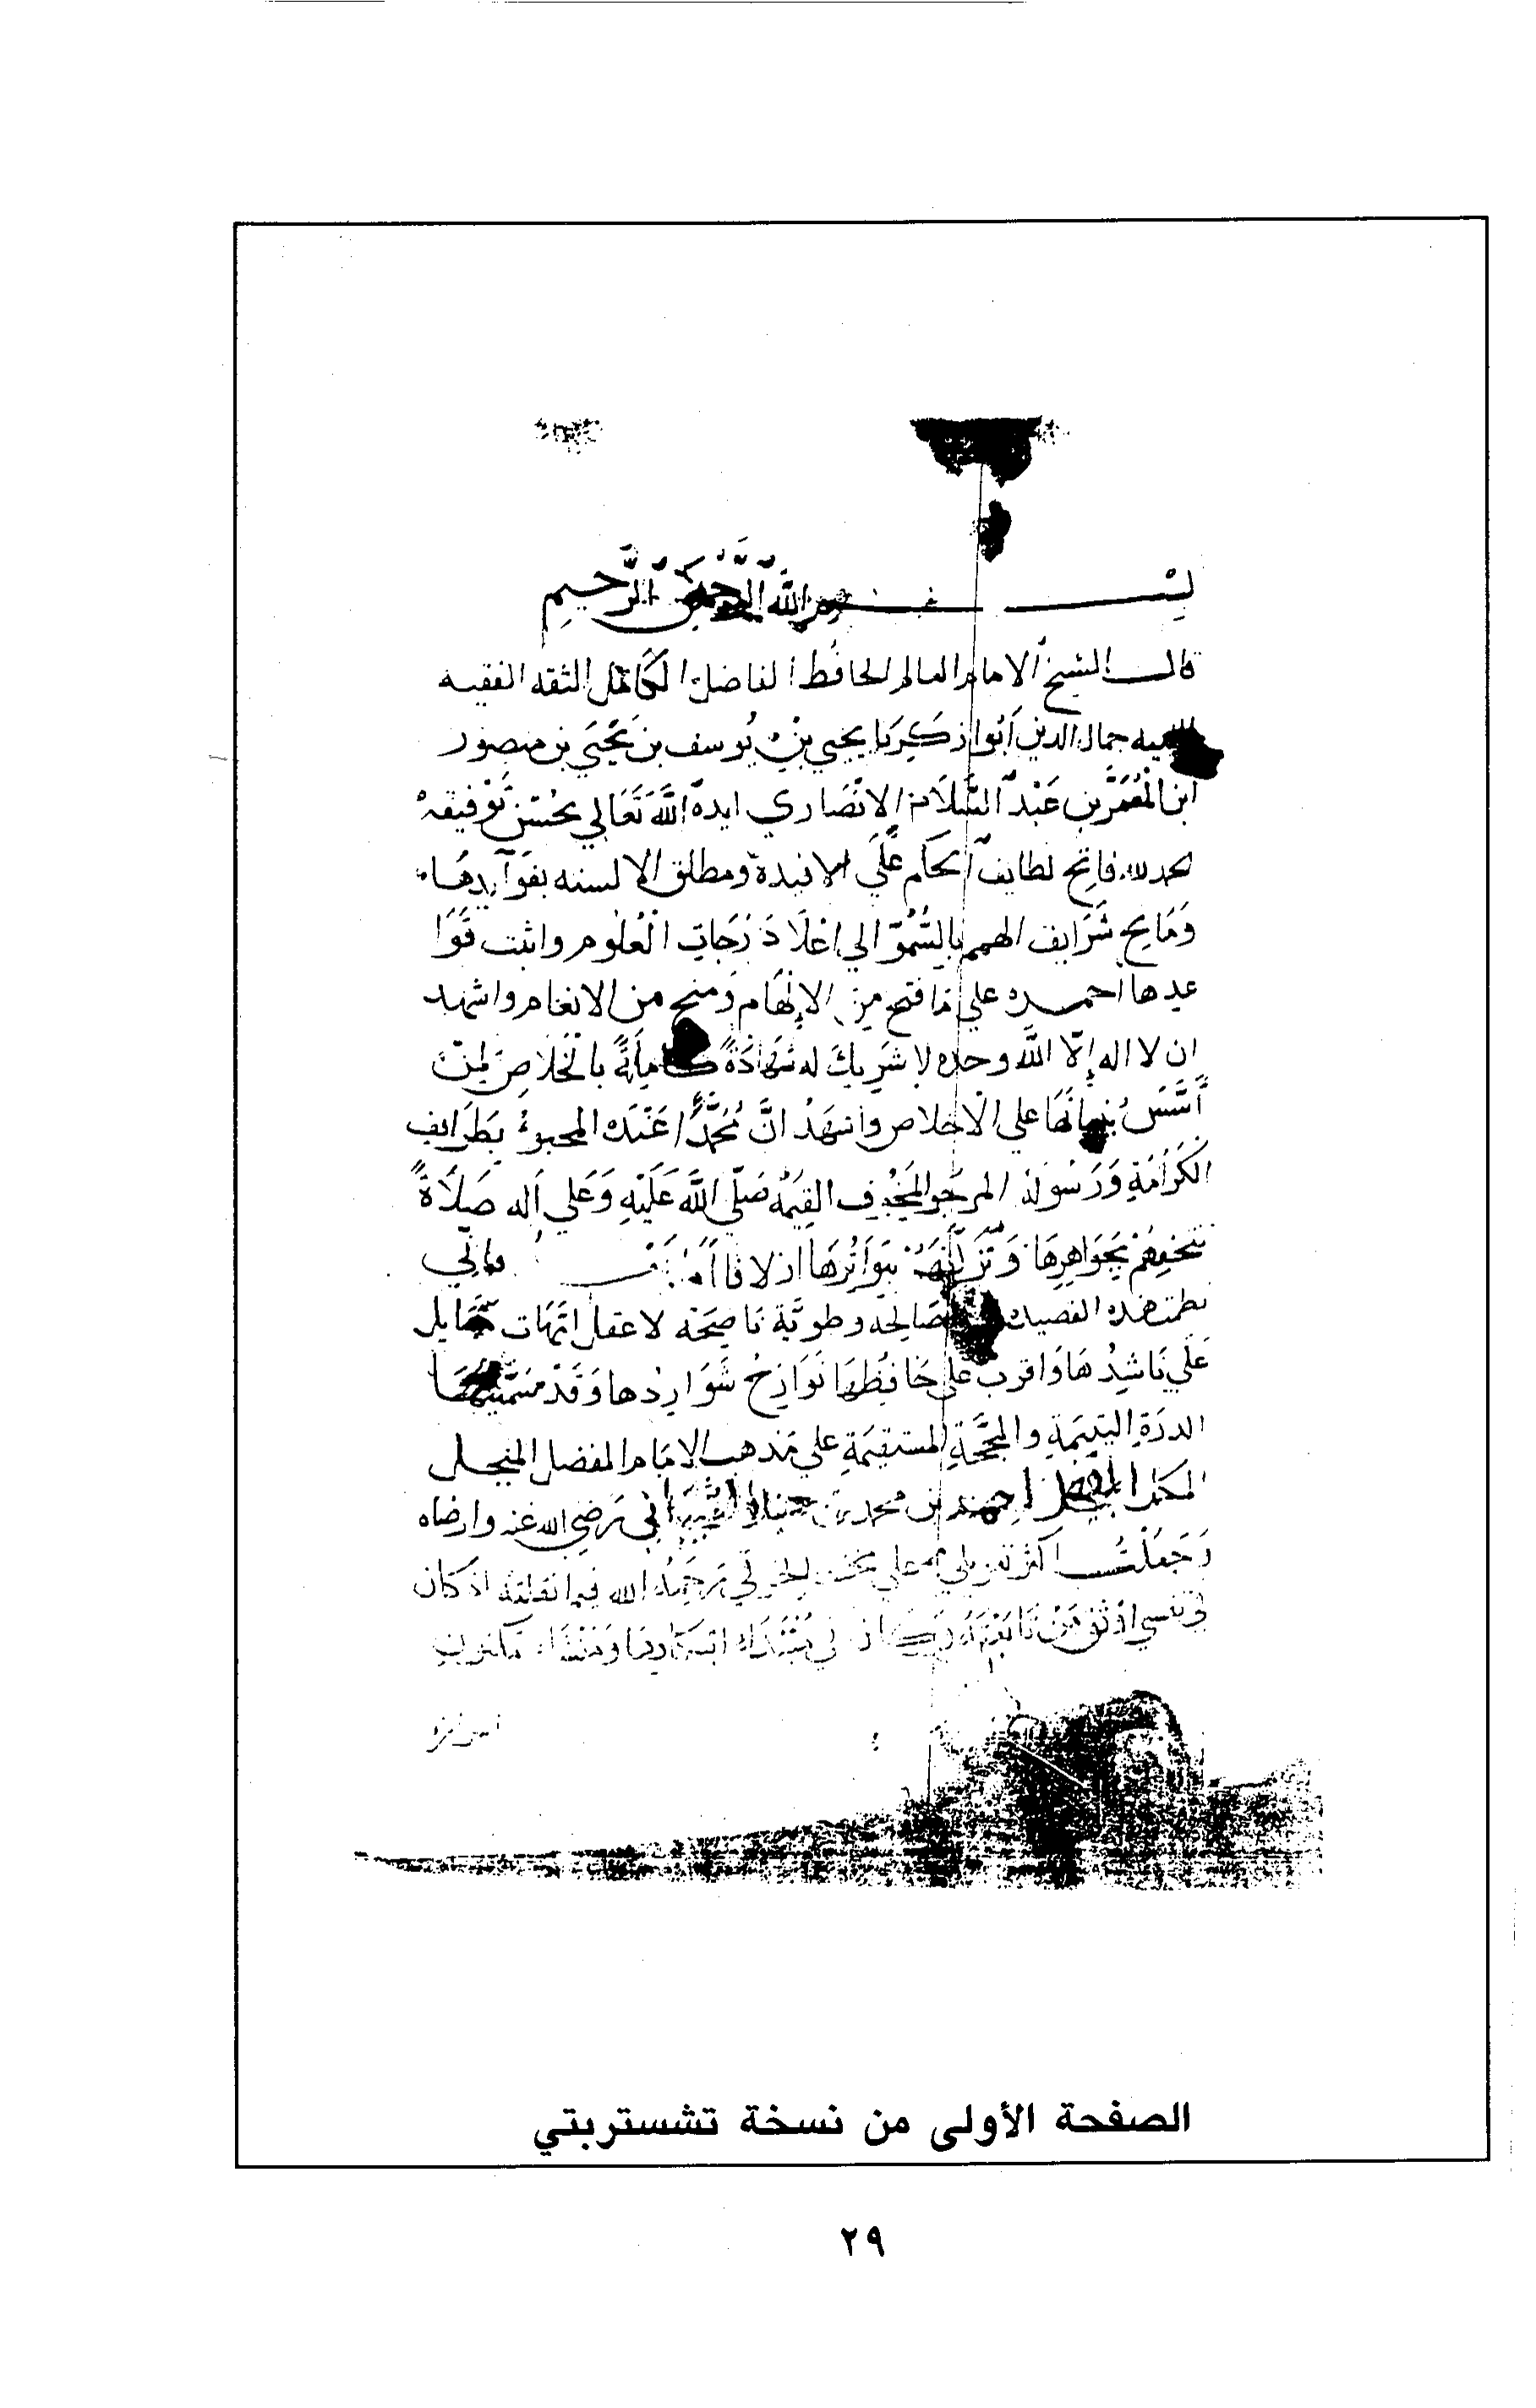 بسم الله الرحمن الرحيم
قال الشيخ الامام العالم الحافظ الفاضل الكامل الثقه الفقيه
جمال الدين أبوا زكريا يحيي بن يوسف بن يحيي بن منصور
ابن المعمر بن عبد السلام الانصاري ايده الله تعالي بحسن توفيقه
الحمد لله فاتح لطايف الحكم علي الافيدة ومطلق الالسنه بفوآيدها
ومانح شرايف الهمم بالسمو الي اعلا درجات العلوم واثبت قوا
عدها احمده علي ما فتح من الإلهام ومنح من الانعام واشهد
ان لا اله إلا الله وحده لا شريك له شهادة بالخلاص لمن
أسس بنيانها علي الاخلاص واشهد ان محمدا عبده المحبو بطرايف
الكرامة ورسوله المرجو القيمة صلي الله عليه وعلي آله صلاة
تتحفهم بجواهرها بتواترها فإني
نظمت هذه القصيدة صالحه وطوية ناصحه لاعقل
علي ناشدها واقرب علي حافظها نوازح شواردها وقد سميتها
الدرة اليتيمة والمحجة المستقيمة علي مذهب الامام المفضل المبجل
احمد بن محمد بن حنبل الشيباني رضي الله عنه وارضاه
وجعلت اكثر تعويلي علي الخرقي رحمه الله فيما نقلته اذ كان
في نفسي اوثق من تابعته وكان في
الصفحة الأولى من نسخة تشستربتي
٢٩